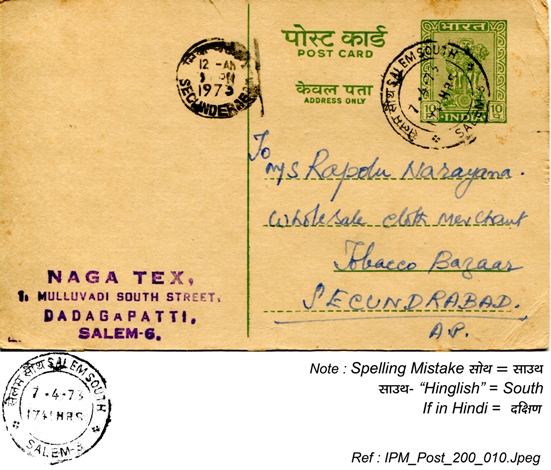 पोस्ट कार्ड
POST CARD
केवल पता
ADDRESS ONLY
भारत
10 10
INDIA
12 -AP
1973
SECUNDERABAD
सेलम सौथ SALEM SOUTH
7-4-73
1741 HRS
SALEM-3
To
M/S Rapolu Narayana.
Wholesale cloth Merchant
Tobacco Bazaar
SECUNDRABAD.
A.P.
NAGA TEX,
1, MULLUVADI SOUTH STREET,
DADAGAPATTI,
SALEM-6.
सेलम सौथ SALEM SOUTH
7-4-73
1741 HRS
SALEM-3
Note : Spelling Mistake सोथ = साउथ
साउथ- “Hinglish” = South
If in Hindi = दक्षिण
Ref : IPM_Post_200_010.Jpeg